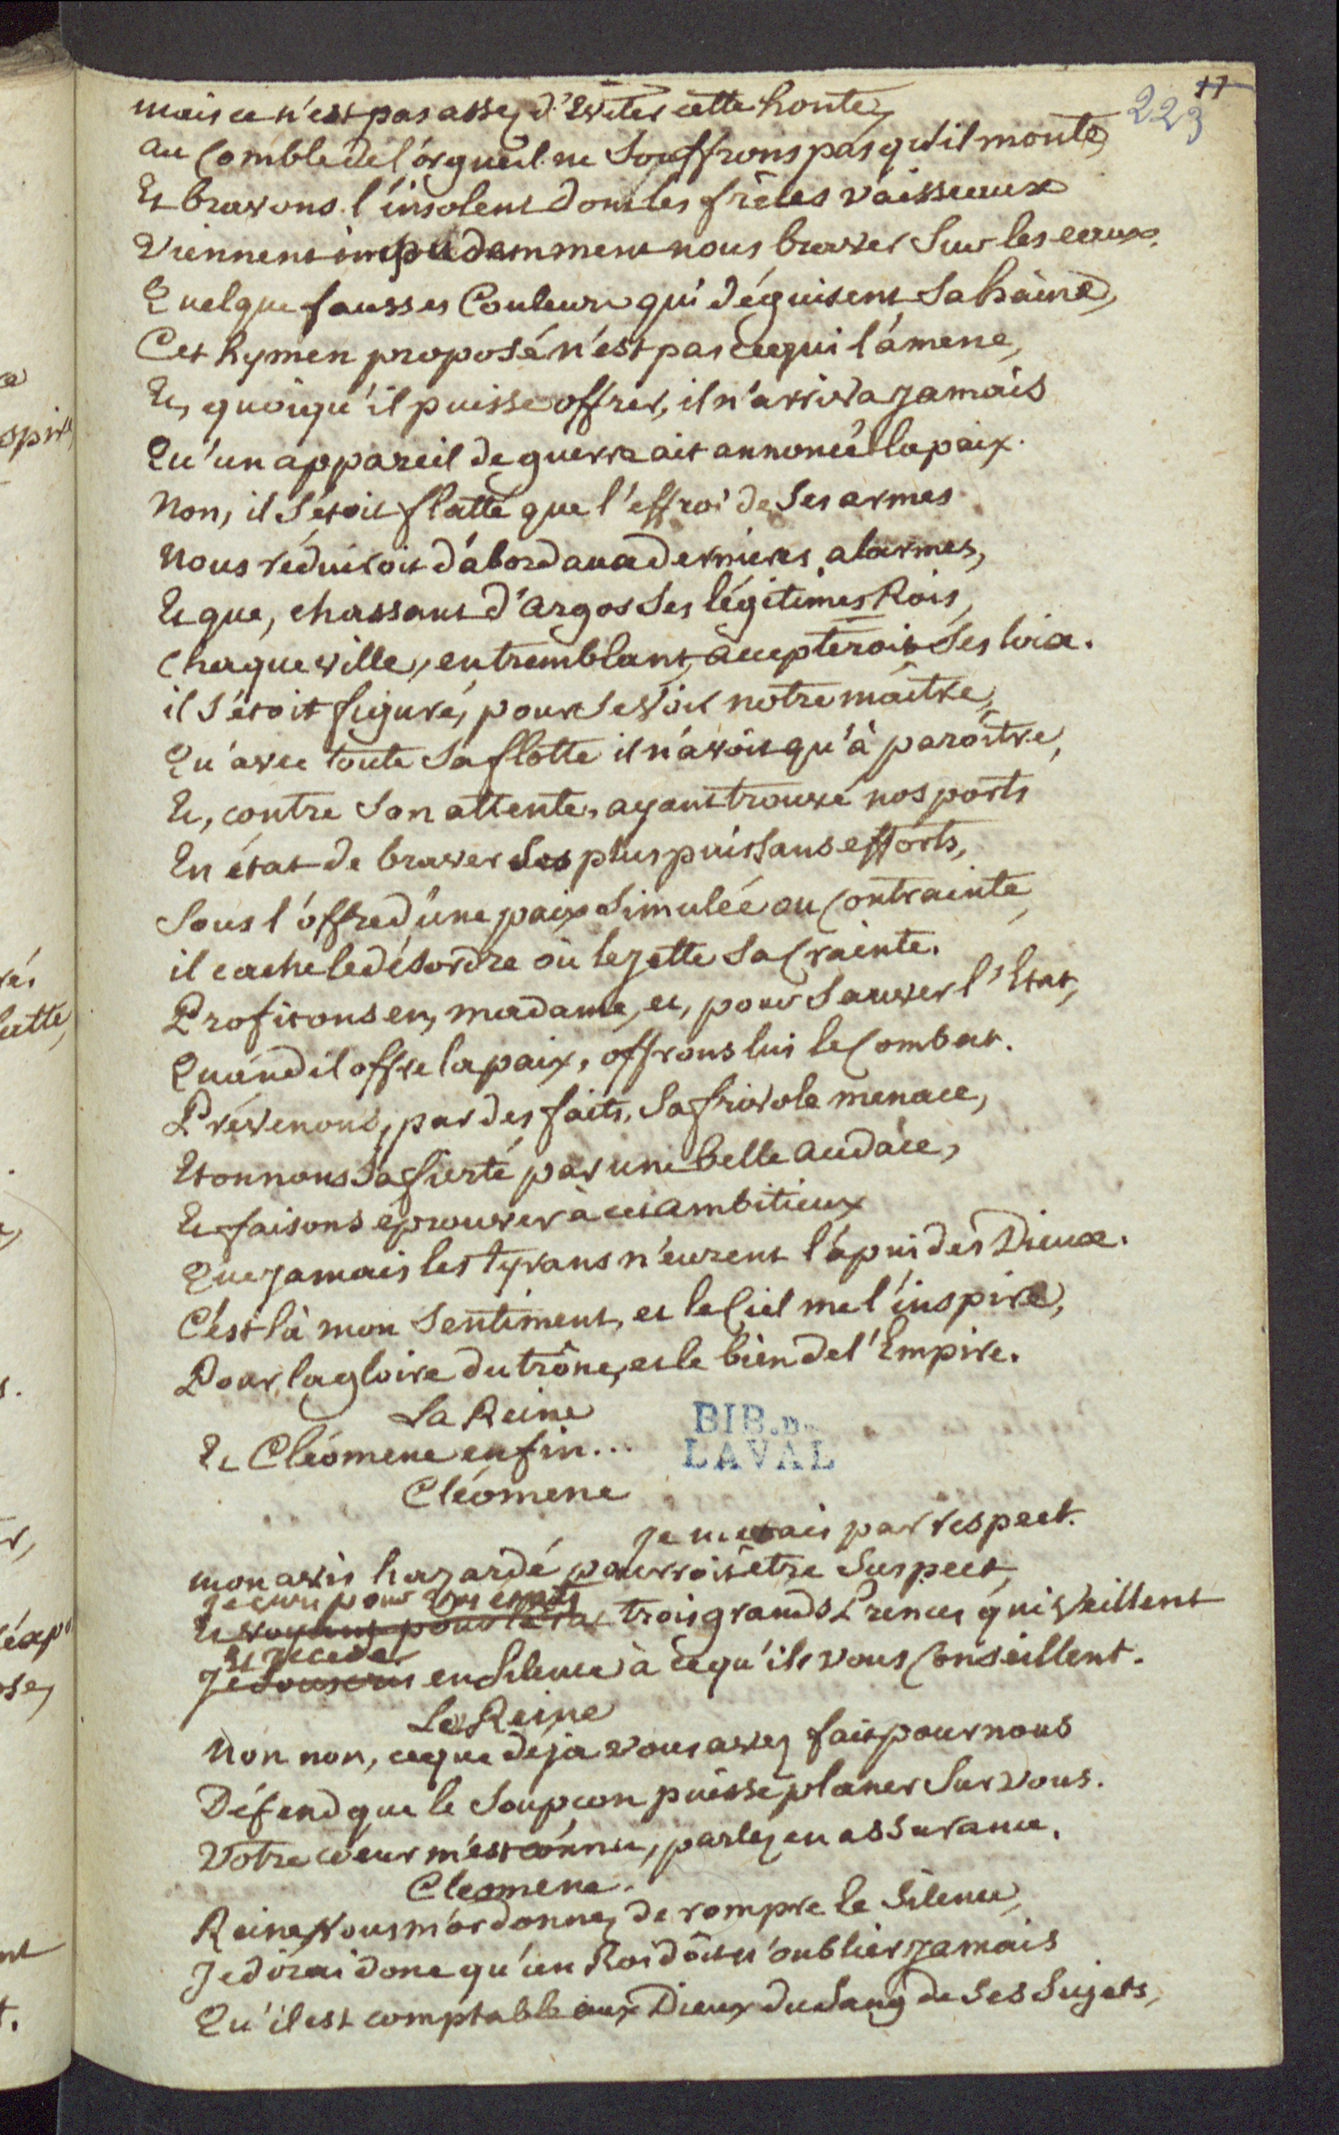 17
223
mais ce n'est pas assez d'éviter cette honte,
au Comble de l'orgueil ne Souffrons pas qu'il monte,
Et bravons l'insolent dont les frêles vaisseaux
viennent impudemment nous braver Sur les eaux.
Quelque fausses Couleurs qui déguisent Sa haine,
Cet hymen proposé n'est pas ce qui l'amene,
Et, quoiqu'il puisse offrir, il n'arriva jamais
Qu'un appareil de guerre ait annoncé la paix.
Non, il S'étoit flatté que l'effroi de Ses armes
Nous réduiroit d'abord aux dernieres alarmes,
Et que, chassant d'argos Ses légitimes Rois,
Chaque ville, en tremblant, accepteroit Ses loix.
il S'étoit figuré, pour Se voir notre maître,
Qu'avec toute Sa flotte il n'avoit qu'à paroître,
Et, contre Son attente, ayant trouvé nos ports
En état de braver Ses plus puissans efforts,
Sous l'offre d'une paix Simulée ou Contrainte,
il cache le désordre où le jette Sa Crainte.
Profitons en, madame, et, pour Sauver l'Etat,
Quand il offre la paix, offrons lui le Combat.
Prévenons, par des faits, Sa frivole menace,
Etonnons Sa fierté par une belle audace,
Et faisons éprouver à cet ambitieux
Que jamais les Tyrans n'eurent l'apui des Dieux.
C'est là mon Sentiment, et le Ciel me l'inspire,
Pour la gloire du trône, et le bien de l'Empire.
La Reine
Et Cléomene enfin...
BIB. D.
LAVAL
Cléomene
Je me tais par respect.
mon avis hazardé pourroit être Suspect,
Je
Et voyant pour l'état trois grands Princes qui veillent
Et je cede
Je Souscris en Silence à ce qu'ils vous Conseillent.
La Reine
Non non, ce que deja vous avez fait pour nous
Défend que le Soupçon puisse planer Sur vous.
Votre coeur m'est connu, parlez en assurance.
Cleomene.
Reine, Vous m'ordonnez de rompre le Silence,
Je dirai donc qu'un Roi doit n'oublier jamais
Qu'il est comptable aux Dieux du Sang de Ses Sujets,